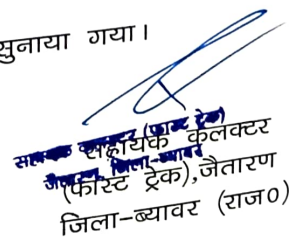 सुनाया गया।
सहायक कलक्टर (फास्ट ट्रेक)
जैतारण, जिला-ब्यावर
सहायक कलक्टर
(फास्ट ट्रेक),जैतारण
जिला-ब्यावर (राज0)